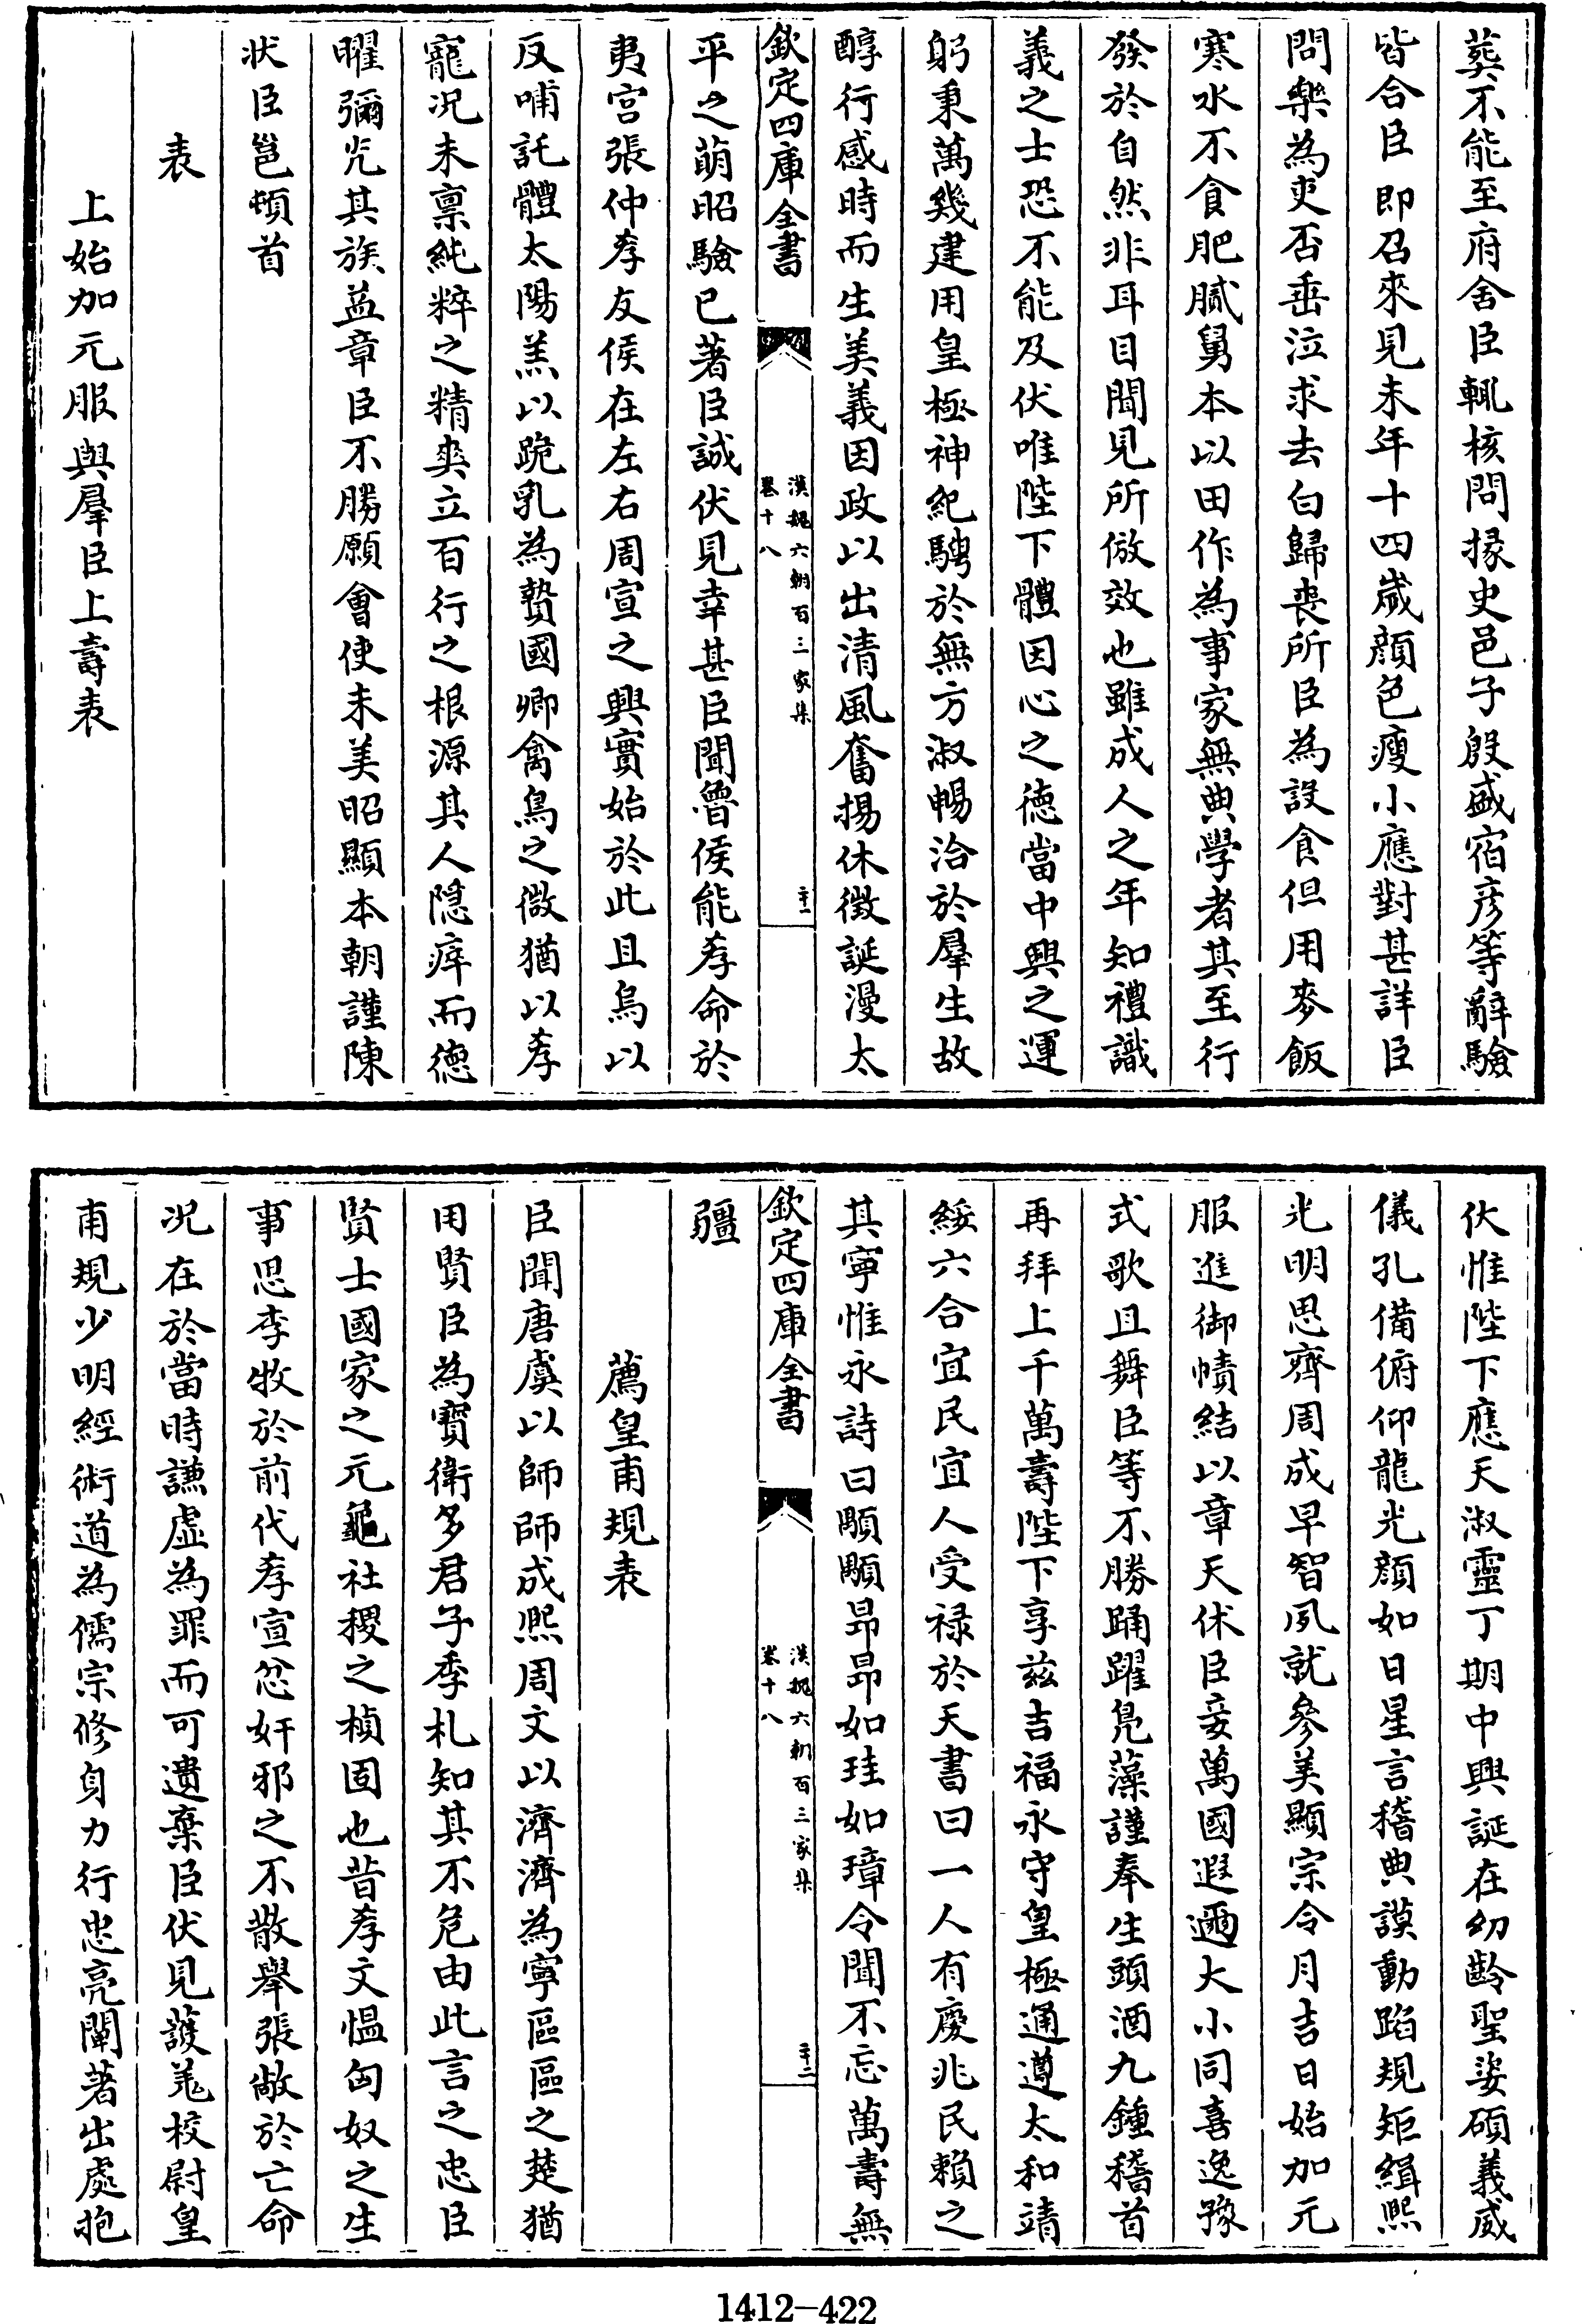 葬不能至府舍臣輒核問掾史邑子殷盛宿彥等辭驗
皆合臣即召來見未年十四歲顏色瘦小應對甚詳臣
問樂為吏否垂泣求去白歸喪所臣為設食但用麥飯
寒水不食肥膩舅本以田作為事家無典學者其至行
發於自然非耳目聞見所倣效也雖成人之年知禮識
義之士恐不能及伏唯陛下體因心之德當中興之運
躬秉萬幾建用皇極神紀騁於無方淑暢洽於羣生故
醇行感時而生美義因政以出清風奮揚休徵誕漫太
欽定四庫全書
漢魏六朝百三家集
卷十八
二十一
平之萌昭驗已著臣誠伏見幸甚臣聞魯侯能孝命於
夷宮張仲孝友侯在左右周宣之興實始於此且烏以
反哺託體太陽羔以跪乳為贄國卿禽鳥之微猶以孝
寵況未稟純粹之精爽立百行之根源其人隱瘁而德
曜彌光其族益章臣不勝願會使未美昭顯本朝謹陳
狀臣邕頓首
表
上始加元服與羣臣上壽表
伏惟陛下應天淑靈丁期中興誕在幼齡聖姿碩義威
儀孔備俯仰龍光顏如日星言稽典謨動蹈規矩緝熙
光明思齊周成早智夙就參美顯宗令月吉日始加元
服進御幘結以章天休臣妾萬國遐邇大小同喜逸豫
式歌且舞臣等不勝踊躍鳧藻謹奉生頭酒九鍾稽首
再拜上千萬壽陛下享茲吉福永守皇極通遵太和靖
綏六合宜民宜人受祿於天書曰一人有慶兆民賴之
其寧惟永詩曰顒顒昂昂如珪如璋令聞不忘萬壽無
欽定四庫全書
漢魏六朝百三家集
卷十八
二十二
疆
薦皇甫規表
臣聞唐虞以師師成熙周文以濟濟為寧區區之楚猶
用賢臣為寶衛多君子季札知其不危由此言之忠臣
賢士國家之元龜社稷之楨固也昔孝文慍匈奴之生
事思李牧於前代孝宣忿奸邪之不散舉張敞於亡命
況在於當時謙虛為罪而可遺棄臣伏見護羌校尉皇
甫規少明經術道為儒宗修身力行忠亮闡著出處抱
1412-422